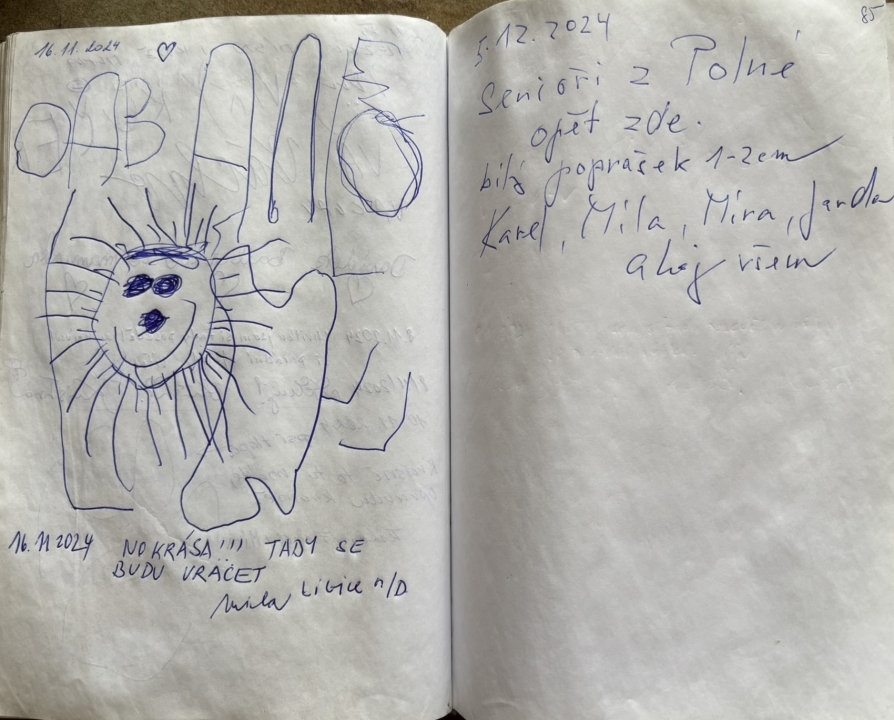 16.11.2024 ♡
16.11.2024 NO KRÁSA!!! TADY SE
BUDU VRACET
Libice n/D
85
5.12.2024
Senioři z Polné
opět zde.
bílý poprašek 1-2cm
Karel, Míla, Míra, Jarda
ahoj všem